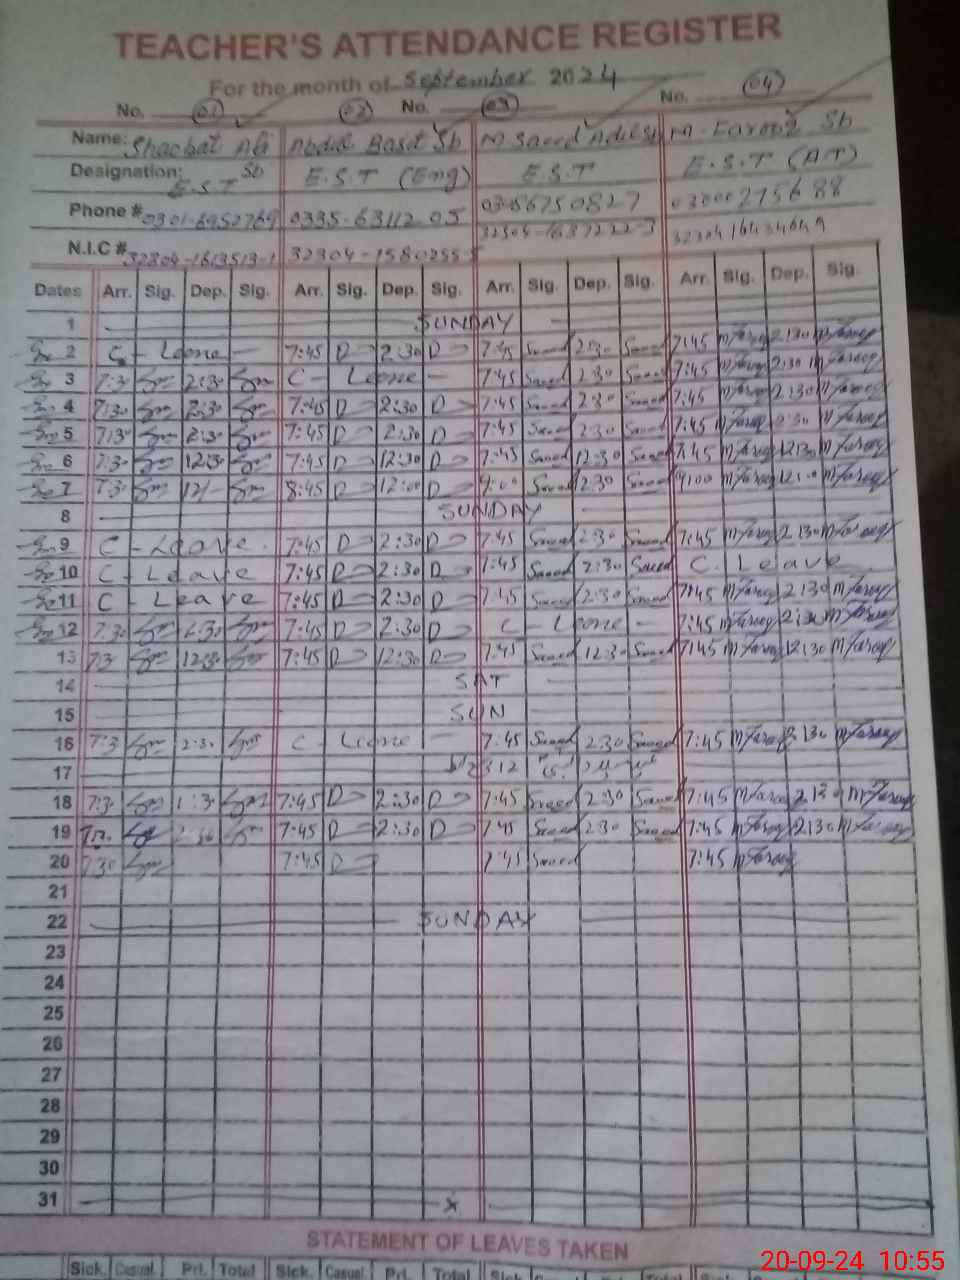 TEACHER'S ATTENDANCE REGISTER
For the month of September 2024
No. 01 02 No. 03 No. 04
Name: Shaobat Ali Sb Abdul Basit Sb M Saeed M. Farooq Sb
Designation: E.S.T E.S.T (Eng) E.S.T E.S.T (AT)
Phone # 0301-6952769 0335-6311205 03456750827 03000275688
N.I.C # 32304-1613513-1 32304-1580255-5
Dates Arr. Sig. Dep. Sig. Arr. Sig. Dep. Sig. Arr. Sig. Dep. Sig. Arr. Sig. Dep. Sig.
1 SUNDAY
2 C - Leave - 7:45 D 2:30 D 7:45 Saeed 2:30 Saeed 7:45 mfarooq 2:30 mfarooq
3 7:3 2:30 C - Leave - 7:45 Saeed 2:30 Saeed 7:45 mfarooq 2:30 mfarooq
4 7:30 2:30 7:45 D 2:30 D 7:45 Saeed 2:30 Saeed 7:45 mfarooq 2:30 mfarooq
5 7:30 2:30 7:45 D 2:30 D 7:45 Saeed 2:30 Saeed 7:45 mfarooq 2:30 mfarooq
6 7:30 12:30 7:45 D 12:30 D 7:45 Saeed 12:30 Saeed 7:45 mfarooq 12:30 mfarooq
7 7:3 12/- 8:45 D 12:00 D 9:00 Saeed 12:30 Saeed 9:00 mfarooq mfarooq
8 SUNDAY
9 C - Leave. 7:45 D 2:30 D 7:45 Saeed 2:30 Saeed 7:45 mfarooq 2:30 mfarooq
10 C - Leave 7:45 D 2:30 D 7:45 Saeed 2:30 Saeed C. Leave
11 C - Leave 7:45 D 2:30 D 7:45 Saeed 2:30 Saeed 7:45 mfarooq 2:30 mfarooq
12 7:30 2:30 7:45 D 2:30 D C - Leave - 7:45 mfarooq 2:30 mfarooq
13 7:3 12:30 7:45 D 12:30 D 7:45 Saeed 12:30 Saeed 7:45 mfarooq 12:30 mfarooq
14 SAT
15 SUN
16 7:3 2:30 C - Leave - 7:45 Saeed 2:30 Saeed 7:45 mfarooq 2:30 mfarooq
17
18 7:3 1:3 7:45 D 2:30 D 7:45 Saeed 2:30 Saeed 7:45 mfarooq 2:30 mfarooq
19 2:30 7:45 D 2:30 D 7:45 Saeed 2:30 Saeed 7:45 mfarooq 2:30 mfarooq
20 7:30 7:45 D 7:45 Saeed 7:45 mfarooq
21
22 SUNDAY
23
24
25
26
27
28
29
30
31 x
STATEMENT OF LEAVES TAKEN
Sick. Casual. Prl. Total Sick. Casual. Prl. Total Sick Total Sick.
20-09-24 10:55